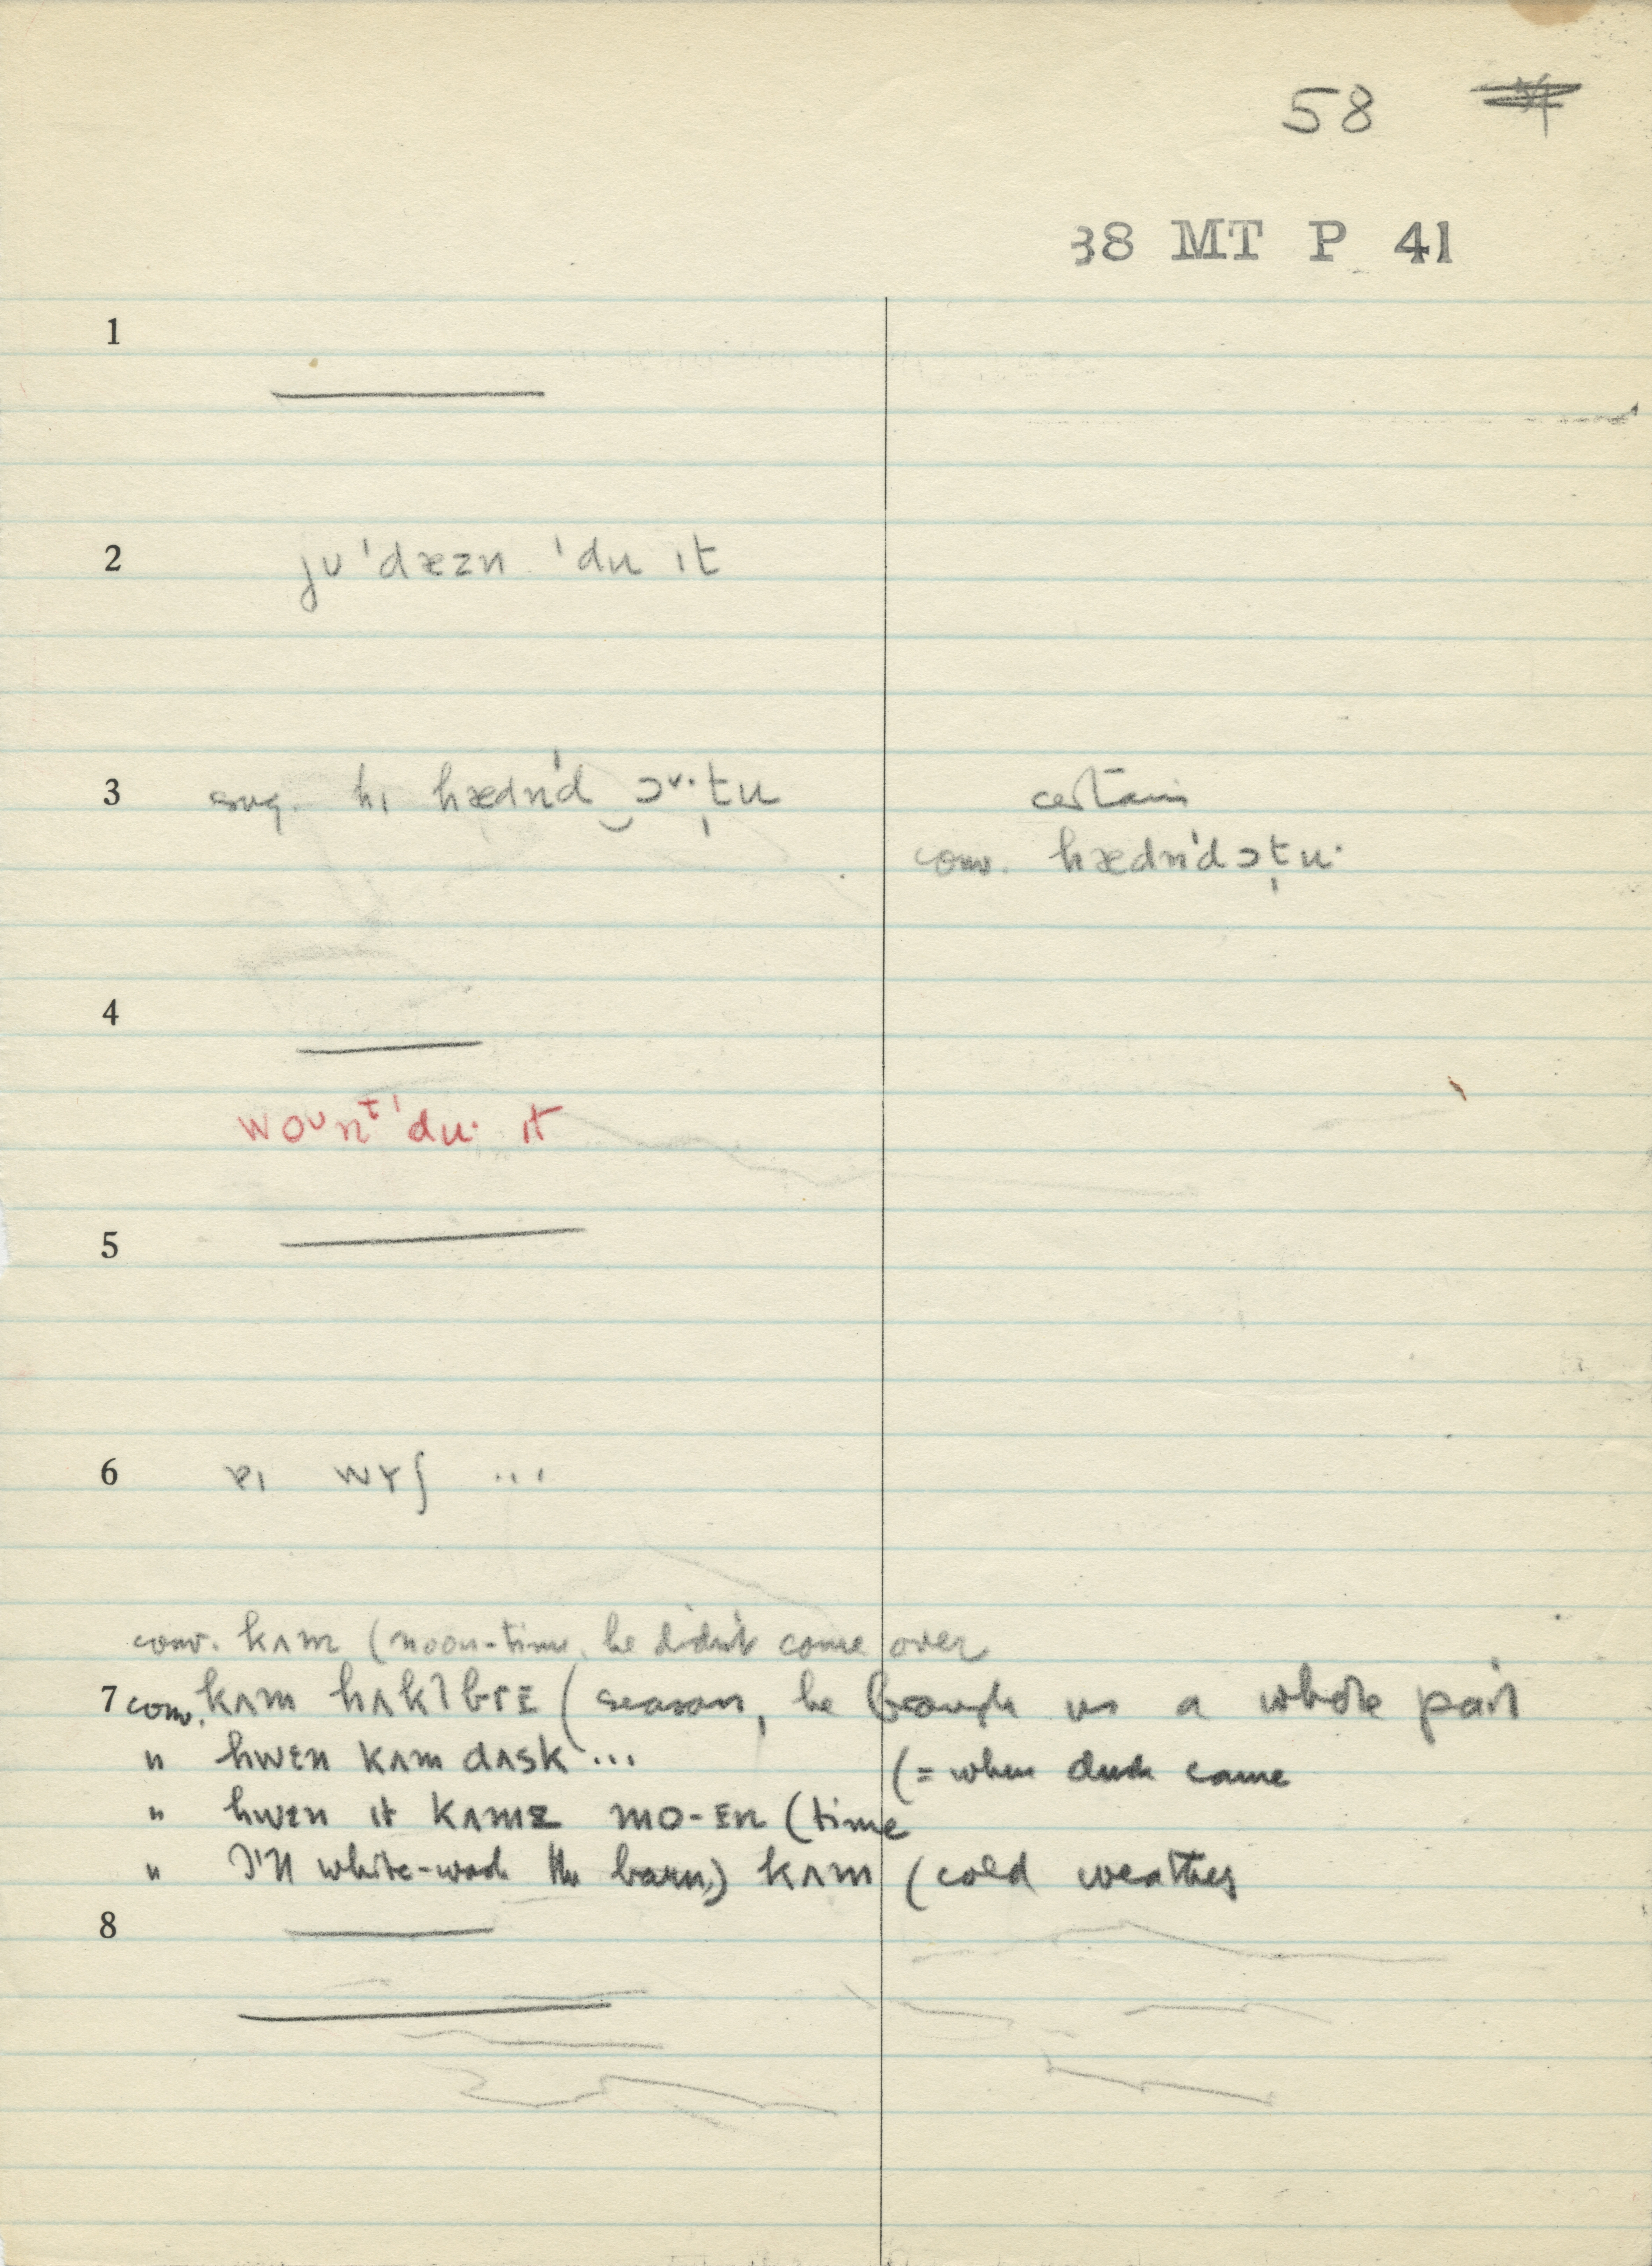 58
38 MT P 41
1
2 ju 'dæzn 'du ɪt
3 sug. hɪ hædn'd ɔᵛ·t̩u certain
conv. hædn'dɔt̩u·
4
woᴜnᵗ'du· ɪt
5
6 wɤʃ ...
conv. kʌm (noon-time, he didn't come over
7 conv. kʌm (season, he brough us a whole pail
" hwɛn kʌm dʌsk ... (= when dusk came
" hwɛn ɪt kʌm (time
" I'll white-wash the barn) kʌm (cold weather
8